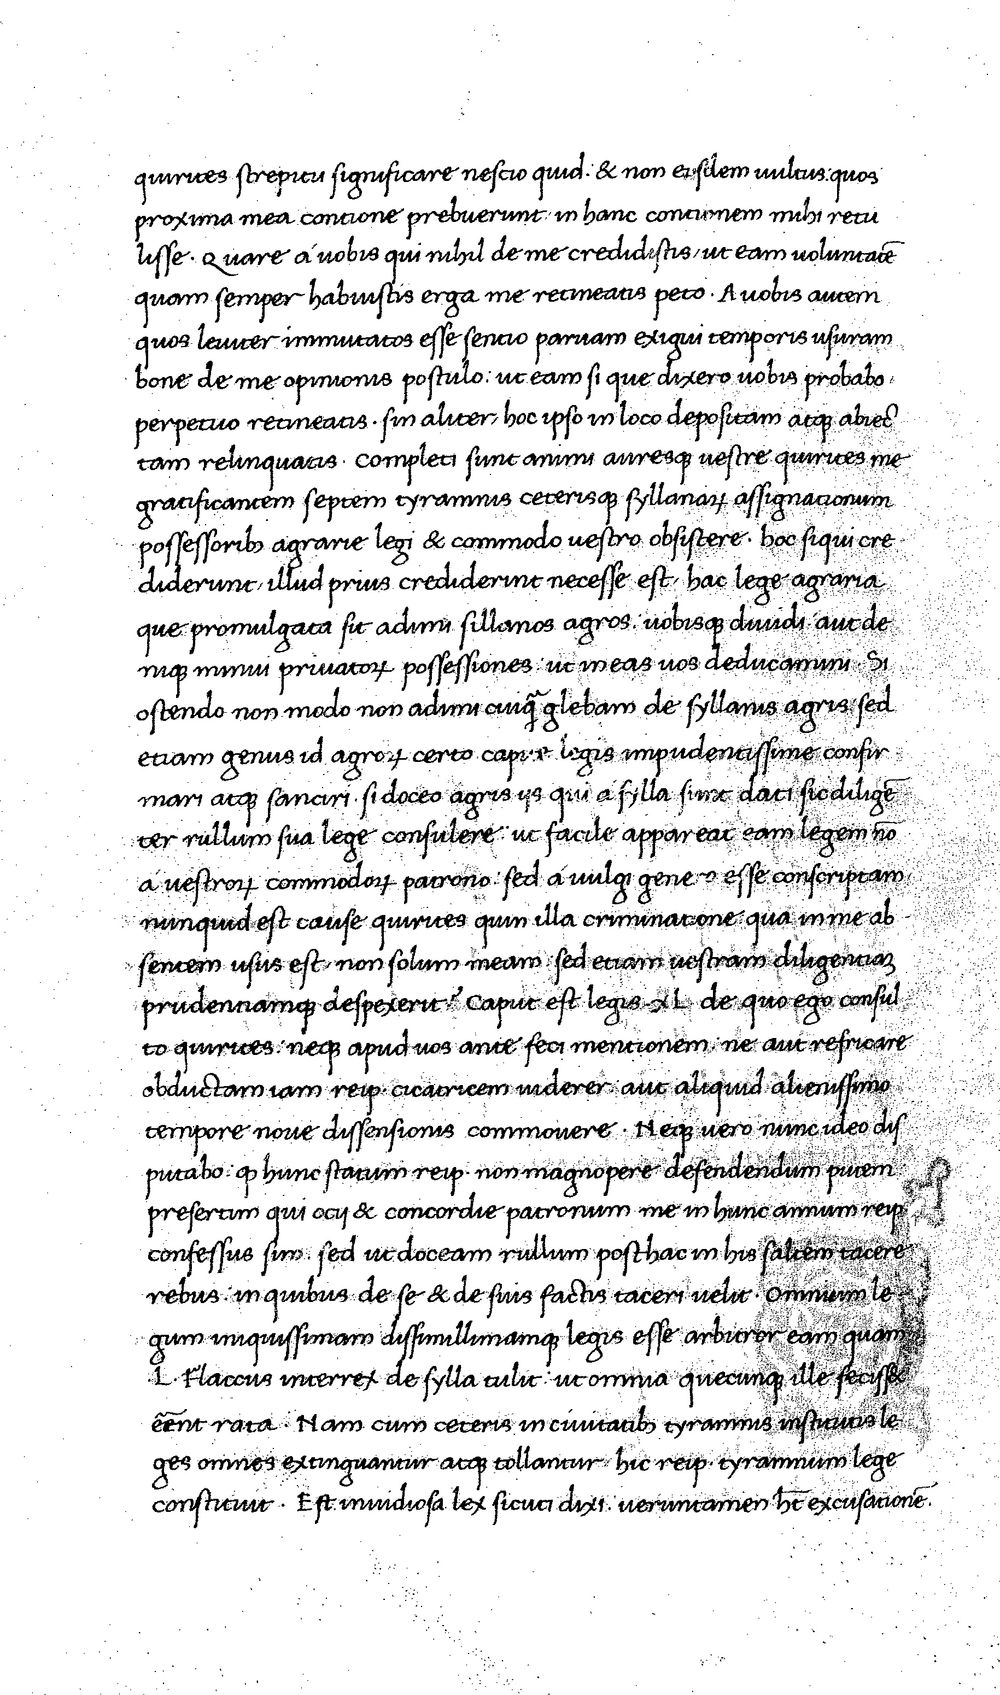 quirites strepitu significare nescio quid. & non eisdem uultus quos
proxima mea contione prebuerunt in hanc contionem mihi retu
lisse. Quare a uobis qui nihil de me credidistis, ut eam uoluntatē
quam semper habuistis erga me retineatis peto. A uobis autem
quos leuiter immutatos esse sentio paruam exigui temporis usuram
bone de me opinionis postulo: ut eam si que dixero uobis probabo
perpetuo retineatis. sin aliter, hoc ipso in loco depositam atqꝫ abiec
tam relinquatis. Completi sunt animi auresqꝫ uestre quirites me
gratificantem septem tyrannis ceterisqꝫ syllanaꝝ assignationum
possessoribꝫ agrarie legi & commodo uestro obsistere. hoc si qui cre
diderunt, illud prius crediderint necesse est, hac lege agraria
que promulgata sit adimi sillanos agros. uobisqꝫ diuidi aut de
niqꝫ minui priuatoꝝ possessiones ut in eas uos deducamini. Si
ostendo non modo non adimi cuiqꝫ̄ glebam de syllanis agris sed
etiam genus id agroꝝ certo capite legis impudentissime confir
mari atqꝫ sanciri. si doceo agris ijs qui a sylla sunt dati sic diligē
ter rullum sua lege consulere ut facile appareat eam legem nō
a uestroꝝ commodoꝝ patrono sed a uulgi genero esse conscriptam
nunquid est cause quirites quin illa criminatione qua in me ab
sentem usus est, non solum meam sed etiam uestram diligentiaꝫ
prudentiamqꝫ despexerit? Caput est legis XL de quo ego consul
to quirites. neqꝫ apud uos ante feci mentionem, ne aut refricare
obductam iam reip. cicatricem uiderer aut aliquid alienissimo
tempore noue dissensionis commouere. Neqꝫ uero nunc ideo dis
putabo. ꝙ hunc statum reip. non magnopere defendendum putem
presertim qui ocij & concordie patronum me in hunc annum reip
confessus sim. sed ut doceam rullum posthac in his saltem tacere
rebus in quibus de se & de suis factis taceri uelit. Omnium le
gum iniquissimam dissimillimamqꝫ legis esse arbitror eam quam
L. Flaccus interrex de sylla tulit ut omnia quecunqꝫ ille fecisset
eēnt rata. Nam cum ceteris in ciuitatibꝫ tyrannis institutis le
ges omnes extinguantur atqꝫ tollantur hic reip. tyrannum lege
constituit. Est inuidiosa lex sicuti dixi. ueruntamen ht̄ excusationē.